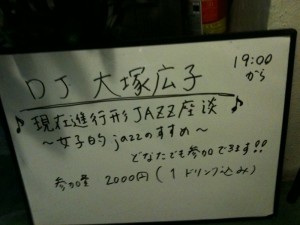 DJ 大塚広子
19:00
から
♪現在進行形JAZZ座談♪
～女子的jazzのすすめ～
どなたでも参加できます!!
参加費 2000円(1ドリンク込み)